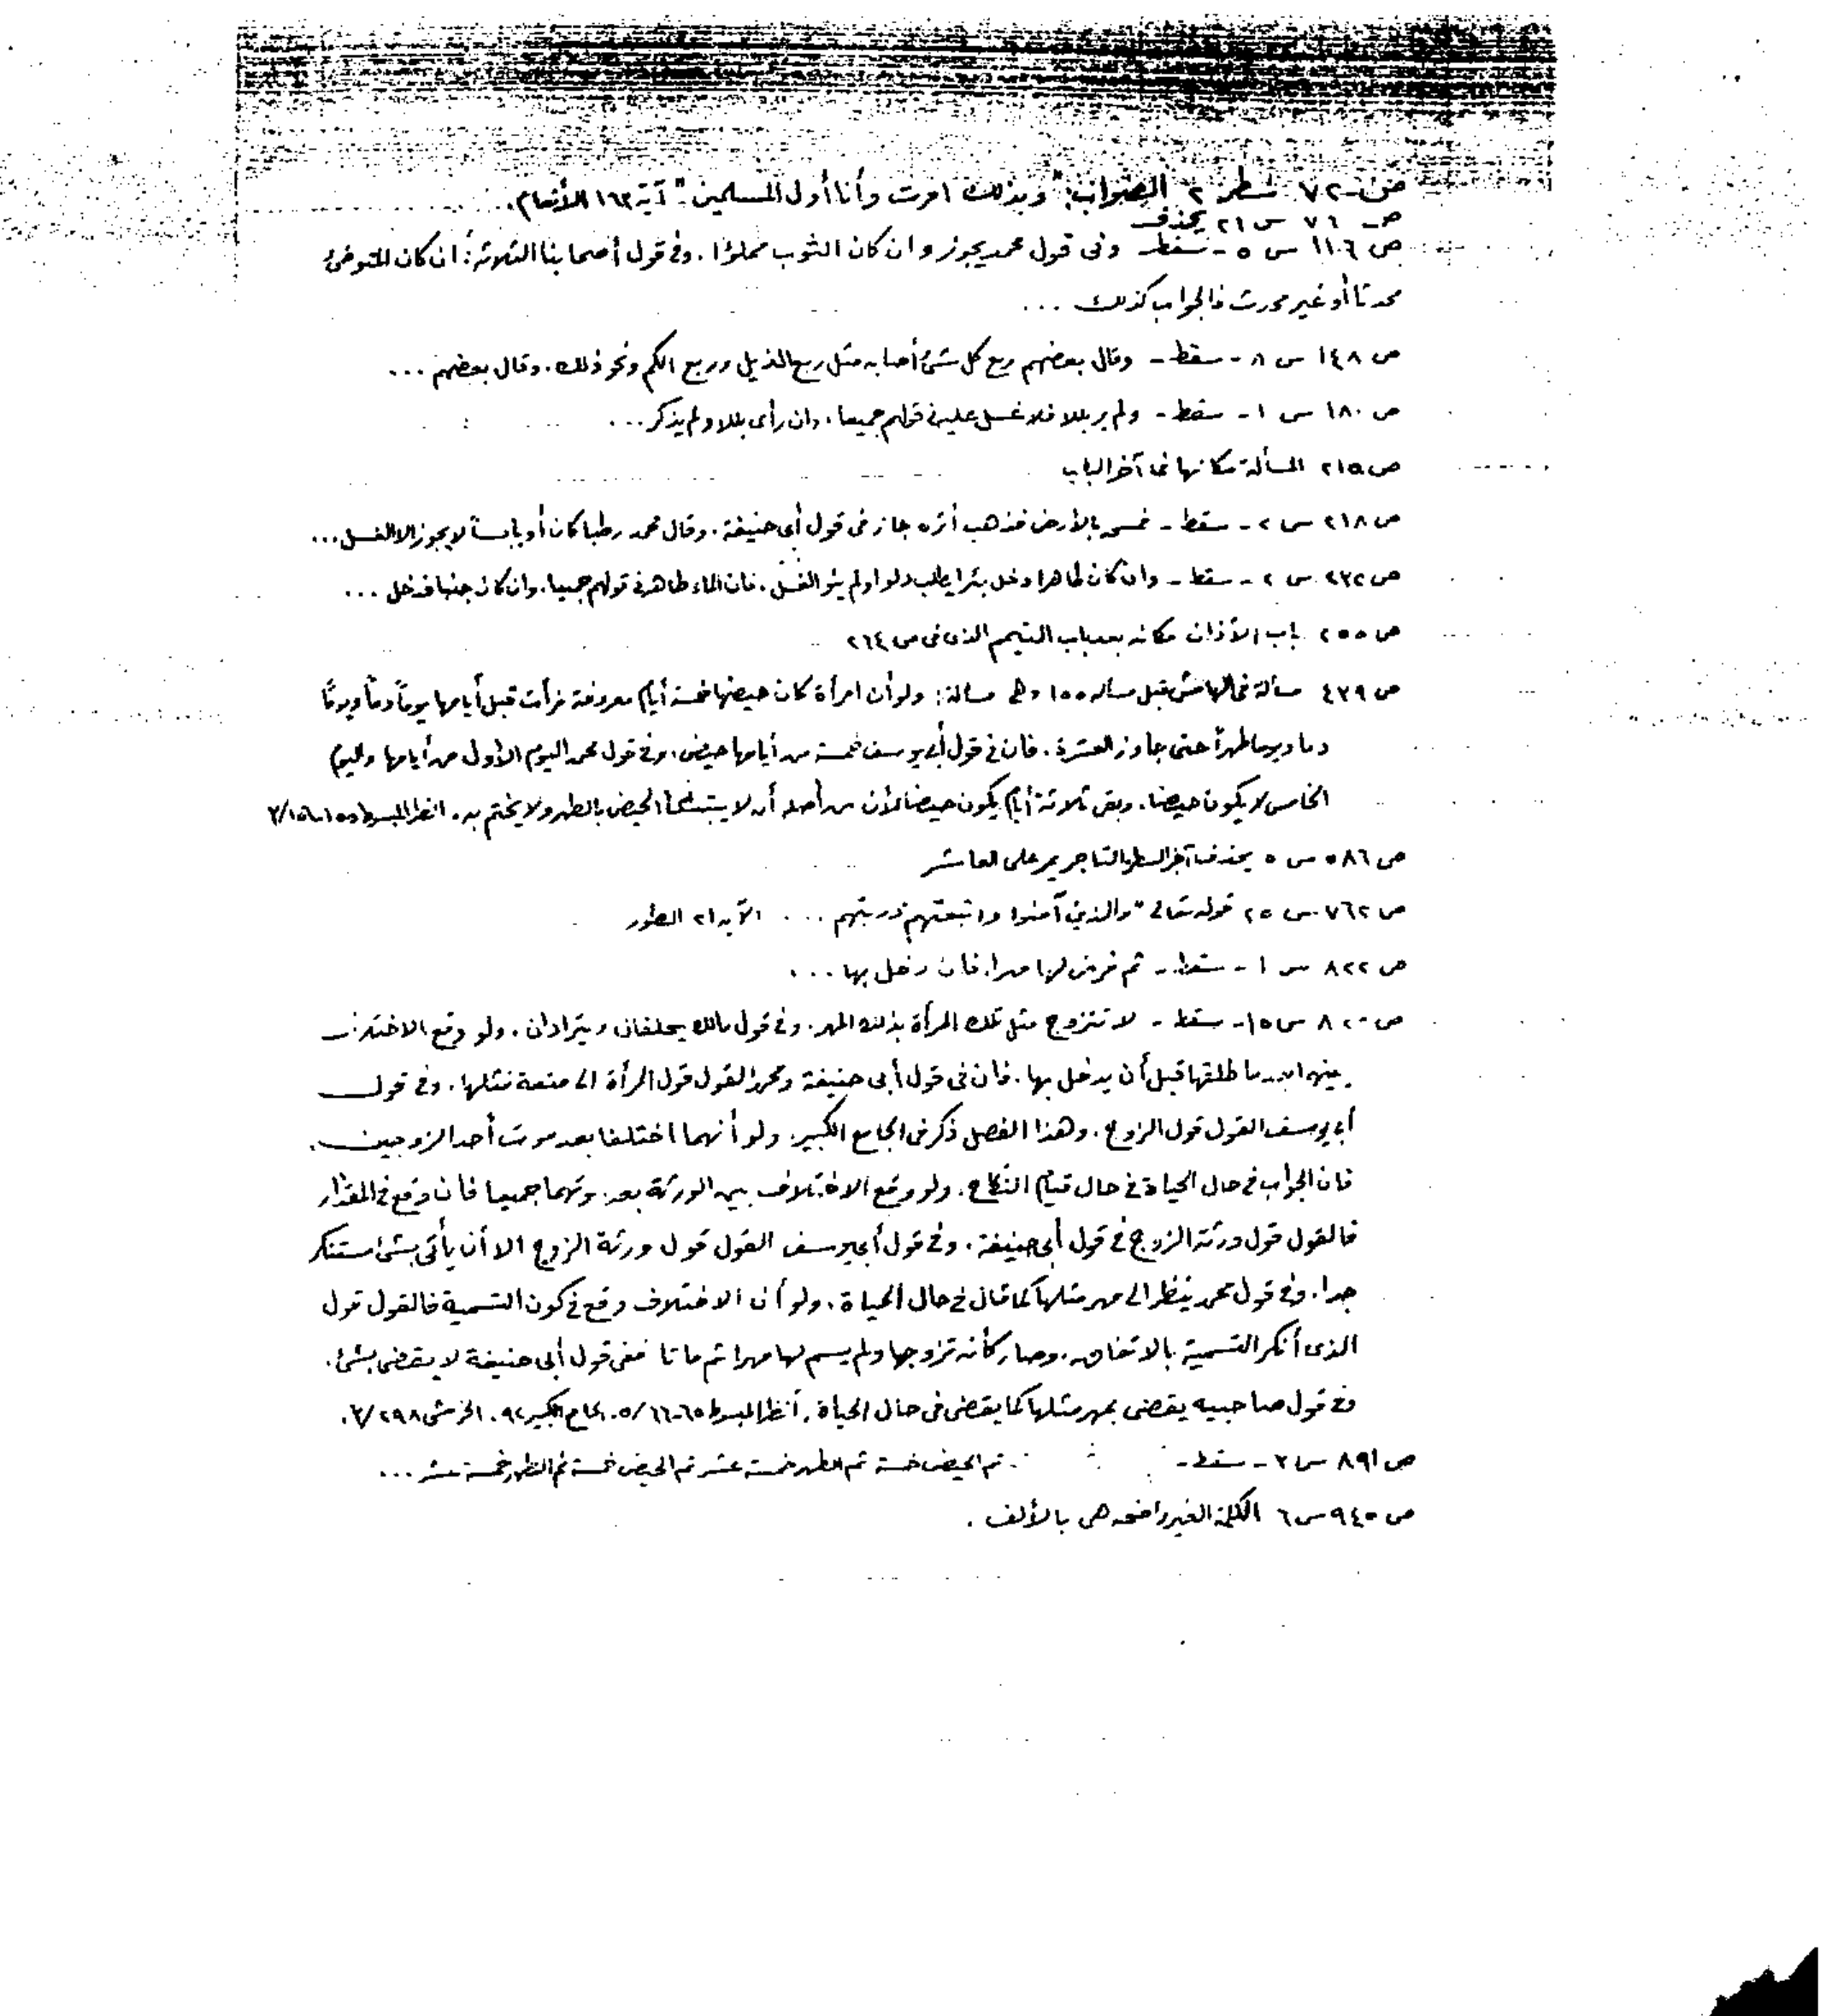 ص ٧٢ سطر ٢ الصواب: "وبذلك امرت وأنا أول المسلمين" آية ١٦٣ الأنعام.
ص ٧٦ س ٢١ يحذف
ص ١١٠٦ س ٥ - سقط - وفى قول محمد يجوز وان كان الثوب مملؤا . وفى قول أصحابنا الثلاثة : ان كان المتوضئ
محدثا أو غير محدث فالجواب كذلك ...
ص ١٤٨ س ٨ - سقط - وقال بعضهم ربع كل شئ أصابه مثل ربع الذيل وربع الكم ونحو ذلك . وقال بعضهم ...
ص ١٨٠ س ١ - سقط - ولم ير بللا فلا غسل عليه فى قولهم جميعا . وان رأى بللا ولم يذكر ...
ص ٢١٥ المسألة مكانها فى آخر الباب
ص ٢١٨ س ٢ - سقط - فمسح بالأرض فذهب أثره جاز فى قول أبى حنيفة . وقال محمد رطبا كان أو يابسا لا يجوز الا الغسل ...
ص ٢٣٢ س ٢ - سقط - وان كان طاهرا دخل بئرا يطلب دلوا ولم ينو الغسل . فان الماء طاهر فى قولهم جميعا . وان كان جنبا فدخل ...
ص ٢٥٥ باب الأذان مكانه بعد باب التيمم الذى فى ص ٢٦٤
ص ٤٣٩ مسألة فى الهامش قبل مسألة ١٥٥ وهى مسألة : ولو أن امرأة كان حيضها خمسة أيام معروفة فرأت قبل أيامها يوماً دماً ويوما
دما ويوما طهراً حتى جاوز العشرة . فان فى قول أبى يوسف خمسة من أيامها حيض ، وفى قول محمد اليوم الأول من أيامها واليوم
الخامس لا يكون حيضا . وبقى ثلاثة أيام يكون حيضا لأن من أصله أن لا يبتدئ الحيض بالطهر ولا يختم به . انظر المبسوط ١٥٥-١٥٦/٣
ص ٥٨٦ س ٥ يحذف آخر السطر التاجر يمر على العاشر
ص ٧٦٢ س ٢٥ قوله تعالى "والذين آمنوا واتبعتهم ذريتهم ... الآية ٢١ الطور
ص ٨٢٢ س ١ - سقط - ثم فرض لها مهرا فان دخل بها ...
ص ٨٢٠ س ١٥ - سقط - لا تتزوج مثل تلك المرأة بذلك المهر . وفى قول مالك يحلفان ويترادان . ولو وقع الاختلاف
بينهما بعد ما طلقها قبل أن يدخل بها . فان فى قول أبى حنيفة ومحمد القول قول المرأة الى متعة مثلها . وفى قول
أبى يوسف القول قول الزوج . وهذا الفصل ذكر فى الجامع الكبير . ولو أنهما اختلفا بعد موت أحد الزوجين .
فان الجواب فى حال الحياة فى حال قيام النكاح . ولو وقع الاختلاف بين الورثة بعد موتهما جميعا فان وقع فى المقدار
فالقول قول ورثة الزوج فى قول أبى حنيفة . وفى قول أبى يوسف القول قول ورثة الزوج الا أن يأتى بشئ استنكر
جدا . وفى قول محمد ينظر الى مهر مثلها كما قال فى حال الحياة . ولو أن الاختلاف وقع فى كون التسمية فالقول قول
الذى أنكر التسمية بالاتفاق . وصار كأنه تزوجها ولم يسم لها مهرا ثم ماتا ففى قول أبى حنيفة لا يقضى بشئ .
وفى قول صاحبيه يقضى بمهر مثلها كما يقضى فى حال الحياة . أنظر المبسوط ٦٥-٦٦/٥ . الجامع الكبير ٩٢ . الخرشى ٢٩٨/٣ .
ص ٨٩١ س ٢ - سقط - ثم الحيض خمسة ثم الطهر خمسة عشر ثم الحيض خمسة ثم الطهر خمسة عشر ...
ص ٩٤٥ س ٦ الكلمة الغير واضحة هى بالألف .